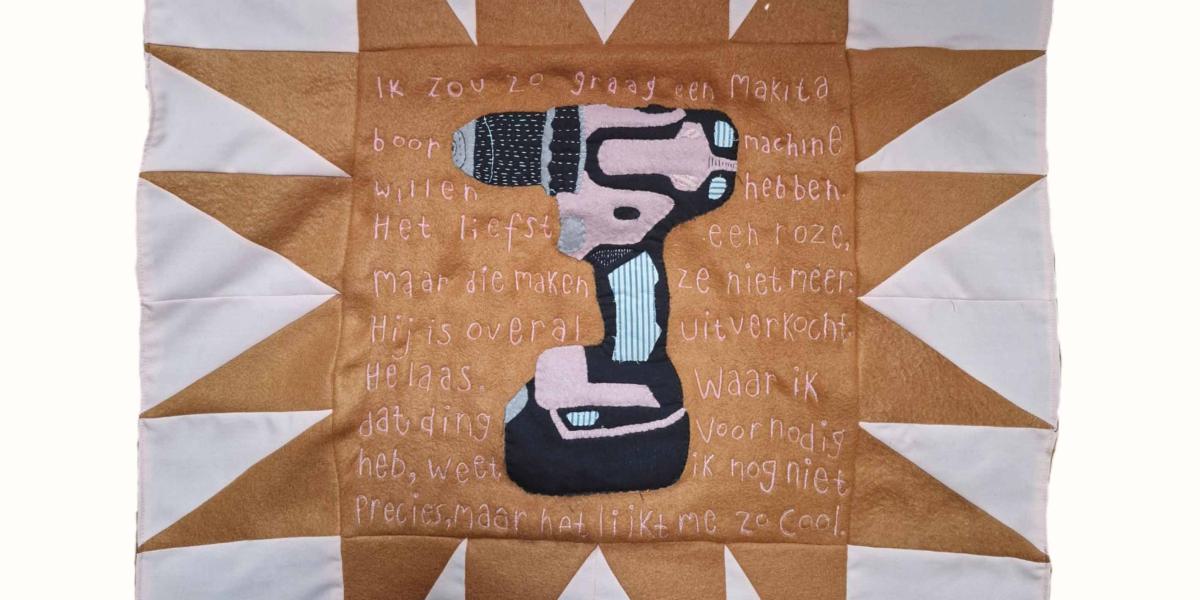 Ik zou zo graag een Makita
boor machine
willen hebben.
Het liefst een roze,
maar die maken ze niet meer.
Hij is overal uitverkocht.
Helaas. Waar ik
dat ding voor nodig
heb, weet ik nog niet
precies, maar het lijkt me zo cool.